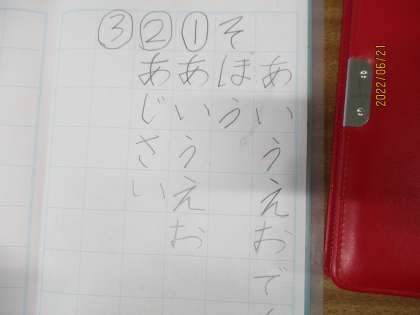 あいうえおで
そほう
①あいうえお
②あじさい
③
2022/06/21